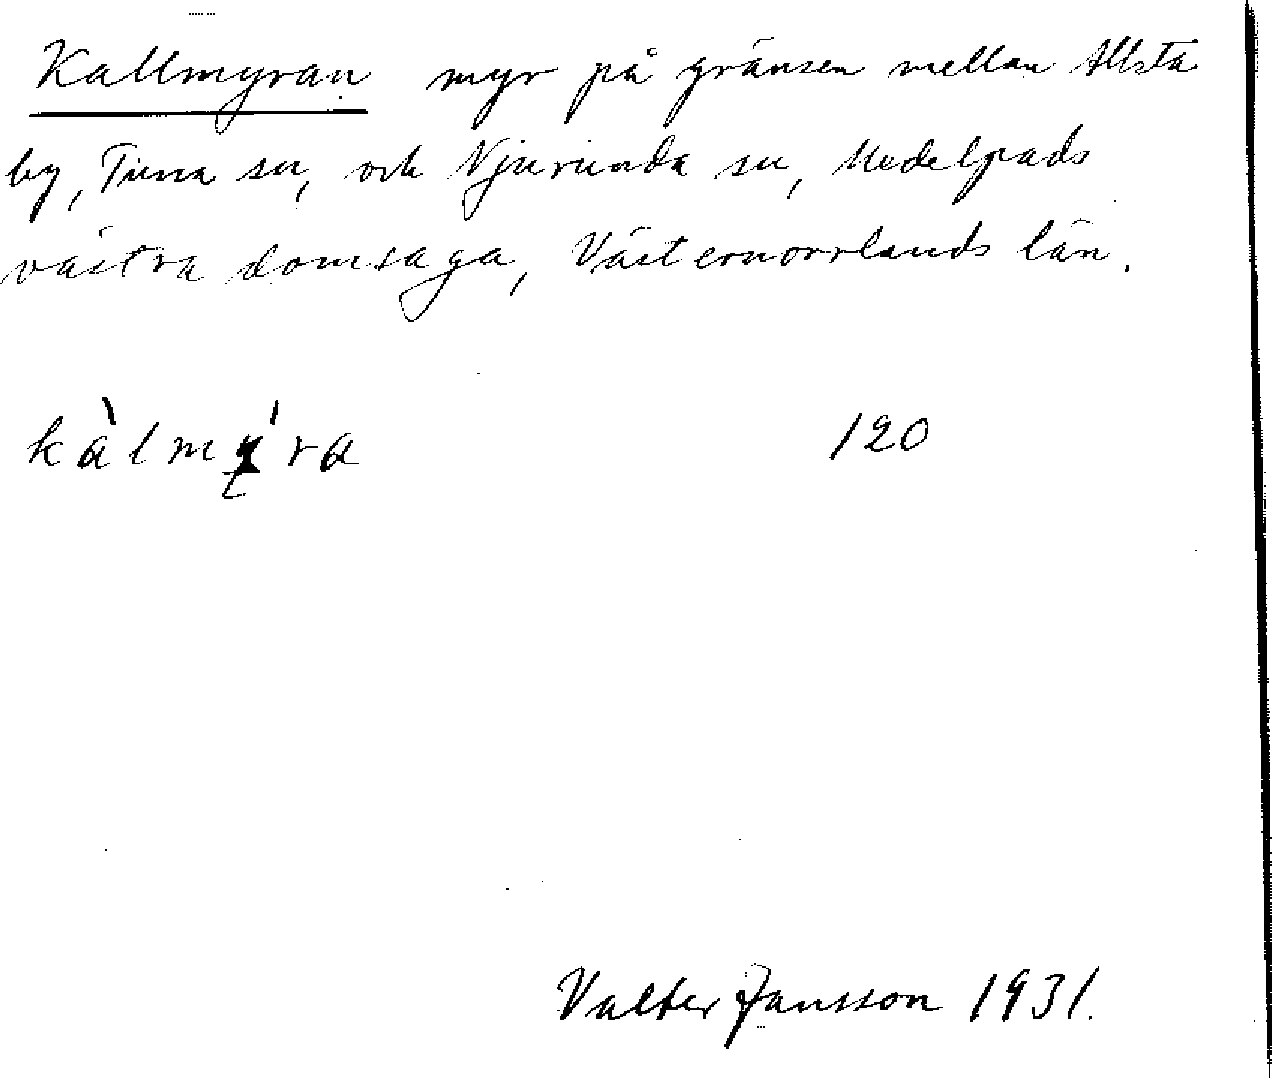 Kallmyran myr på gränsen mellan Allsta
by, Tuna sn, och Njurunda sn, Medelpads
västra domsaga, Västernorrlands län.
kàlmý̨ra 120
Valter Jansson 1931.